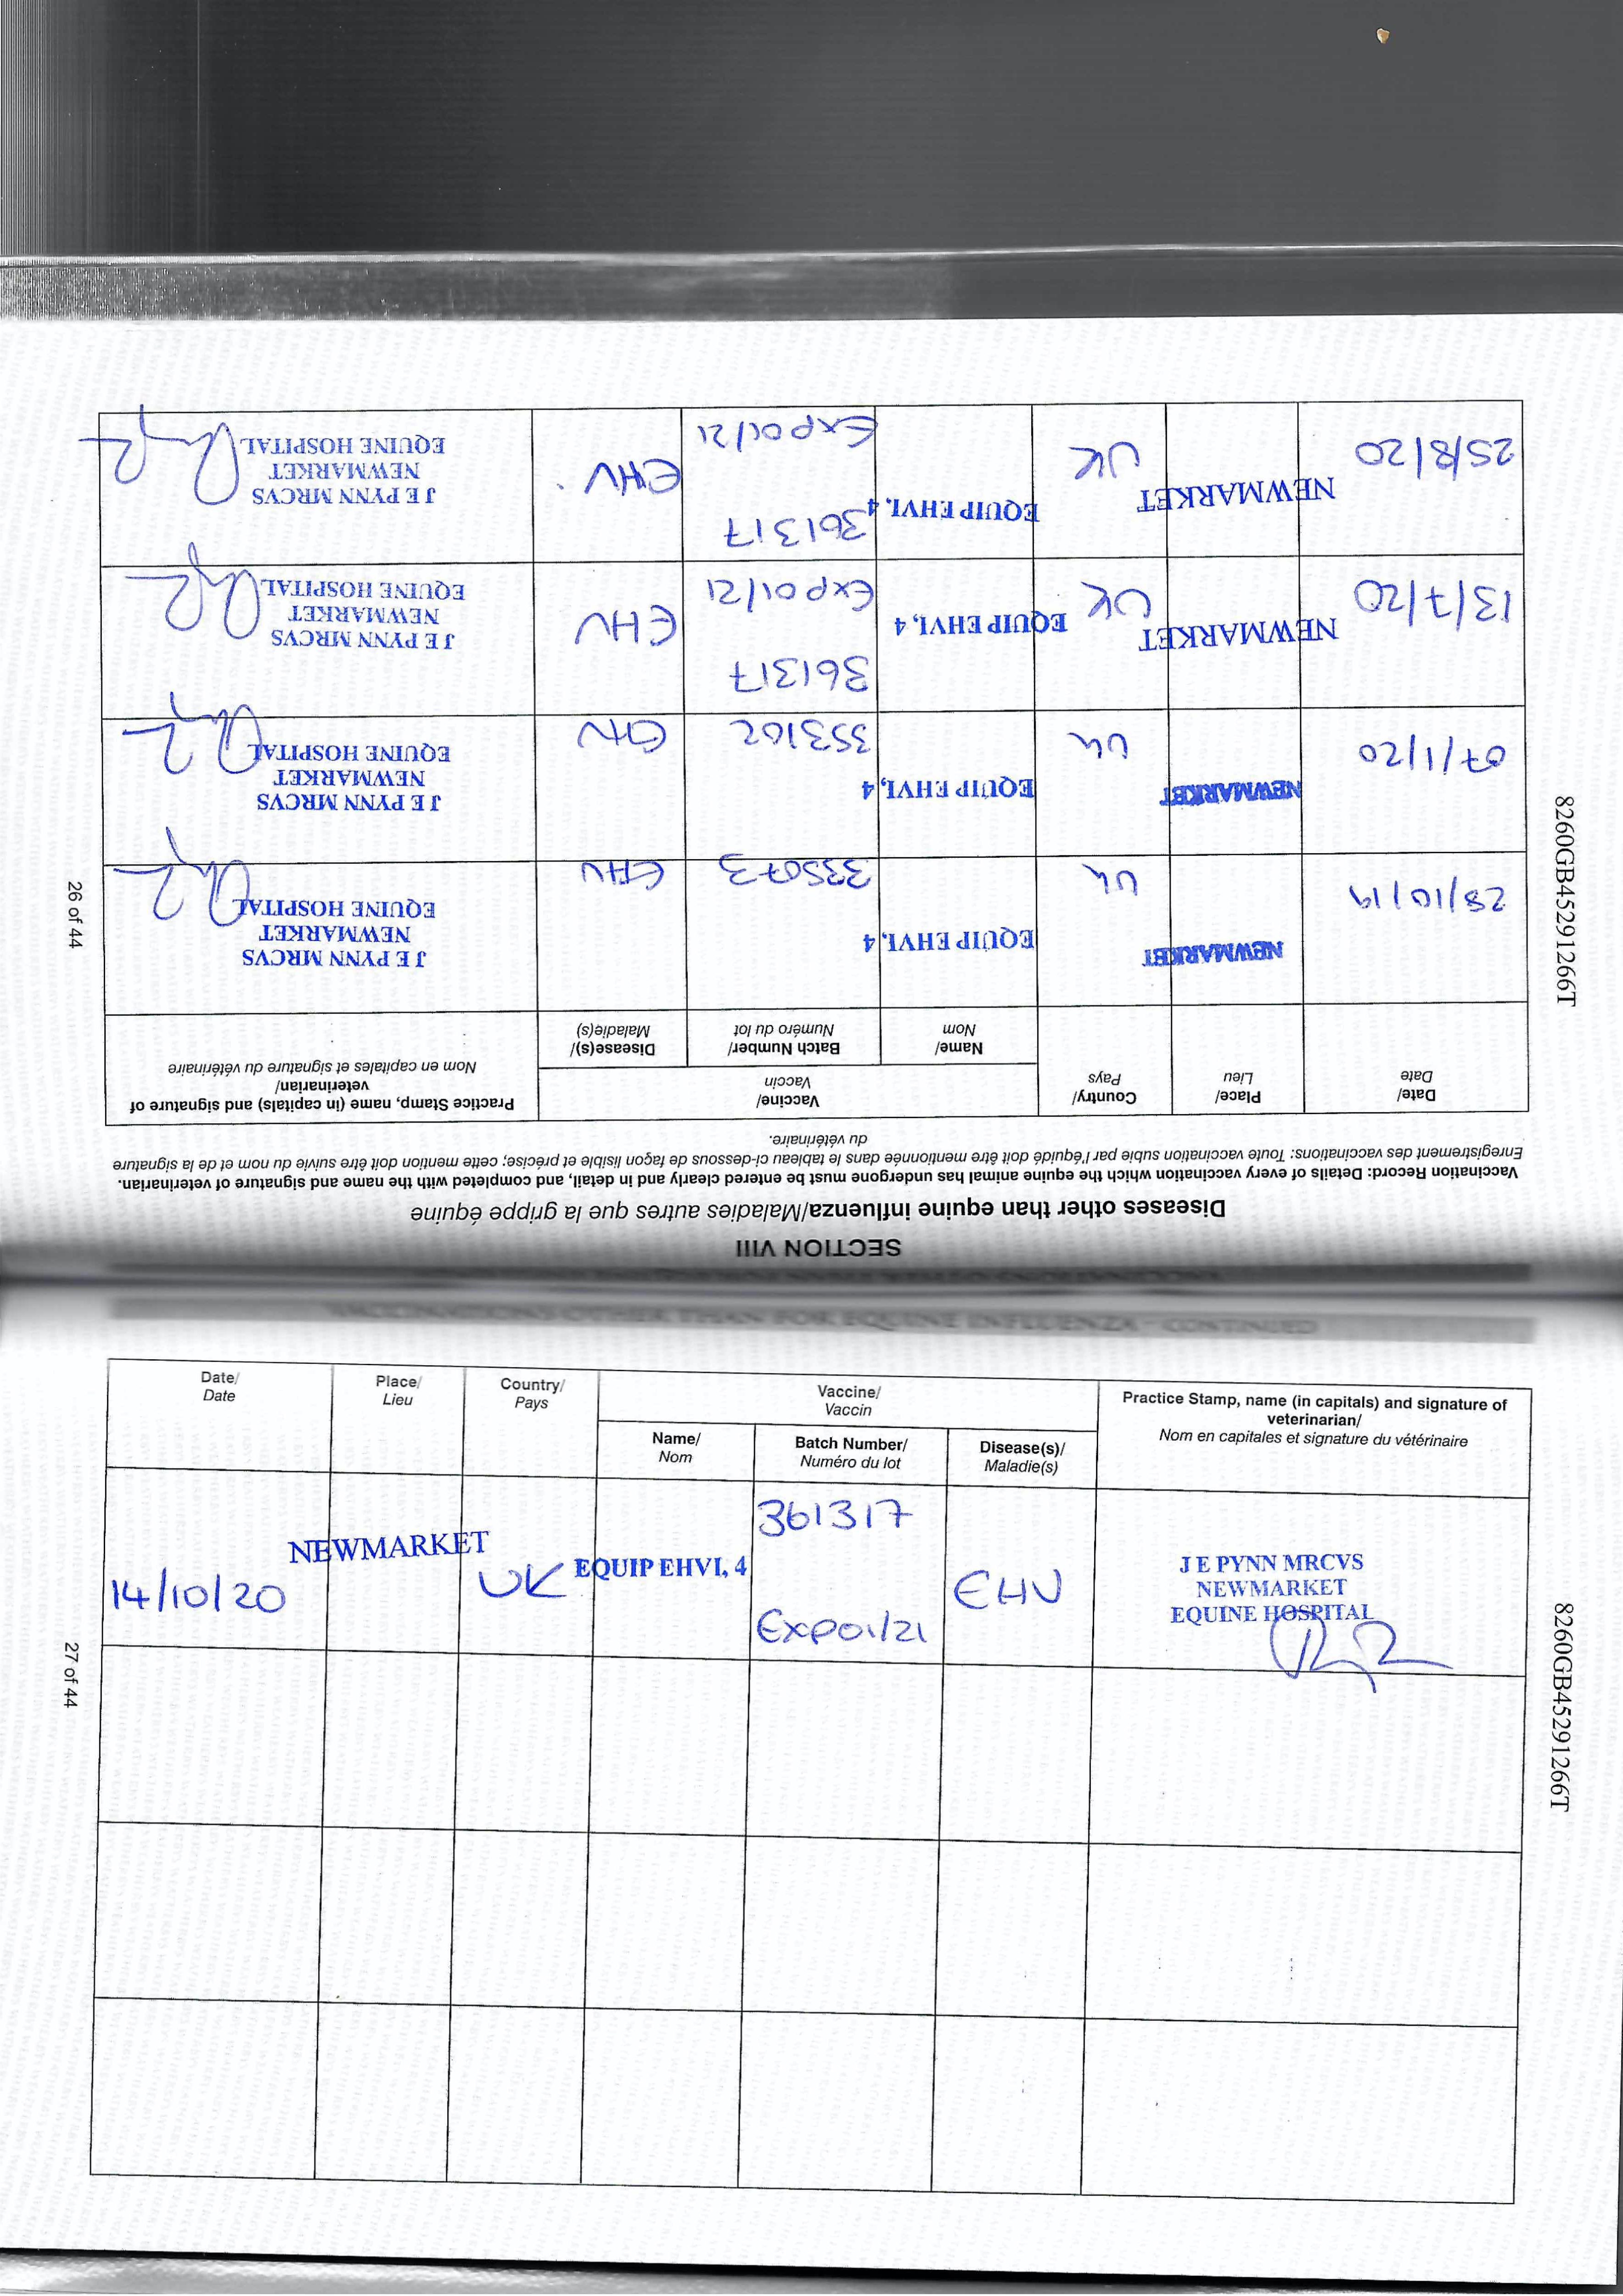 SECTION VIII
Diseases other than equine influenza/Maladies autres que la grippe équine
Vaccination Record: Details of every vaccination which the equine animal has undergone must be entered clearly and in detail, and completed with the name and signature of veterinarian.
Enregistrement des vaccinations: Toute vaccination subie par l'équidé doit être mentionnée dans le tableau ci-dessous de façon lisible et précise; cette mention doit être suivie du nom et de la signature
du vétérinaire.
Date/
Date
Place/
Lieu
Country/
Pays
Vaccine/
Vaccin
Name/
Nom
Batch Number/
Numéro du lot
Disease(s)/
Maladie(s)
Practice Stamp, name (in capitals) and signature of
veterinarian/
Nom en capitales et signature du vétérinaire
28/10/19
NEWMARKET
UK
EQUIP EHVI, 4
335073
EHV
J E PYNN MRCVS
NEWMARKET
EQUINE HOSPITAL
07/1/20
NEWMARKET
UK
EQUIP EHVI, 4
353102
EHV
J E PYNN MRCVS
NEWMARKET
EQUINE HOSPITAL
13/7/20
NEWMARKET
UK
EQUIP EHVI, 4
361317
Exp01/21
EHV
J E PYNN MRCVS
NEWMARKET
EQUINE HOSPITAL
25/8/20
NEWMARKET
UK
EQUIP EHVI, 4
361317
Exp01/21
EHV
J E PYNN MRCVS
NEWMARKET
EQUINE HOSPITAL
26 of 44
8260GB45291266T
VACCINATIONS OTHER THAN FOR EQUINE INFLUENZA - CONTINUED
Date/
Date
Place/
Lieu
Country/
Pays
Vaccine/
Vaccin
Name/
Nom
Batch Number/
Numéro du lot
Disease(s)/
Maladie(s)
Practice Stamp, name (in capitals) and signature of
veterinarian/
Nom en capitales et signature du vétérinaire
14/10/20
NEWMARKET
UK
EQUIP EHVI, 4
361317
Exp01/21
EHV
J E PYNN MRCVS
NEWMARKET
EQUINE HOSPITAL
27 of 44
8260GB45291266T